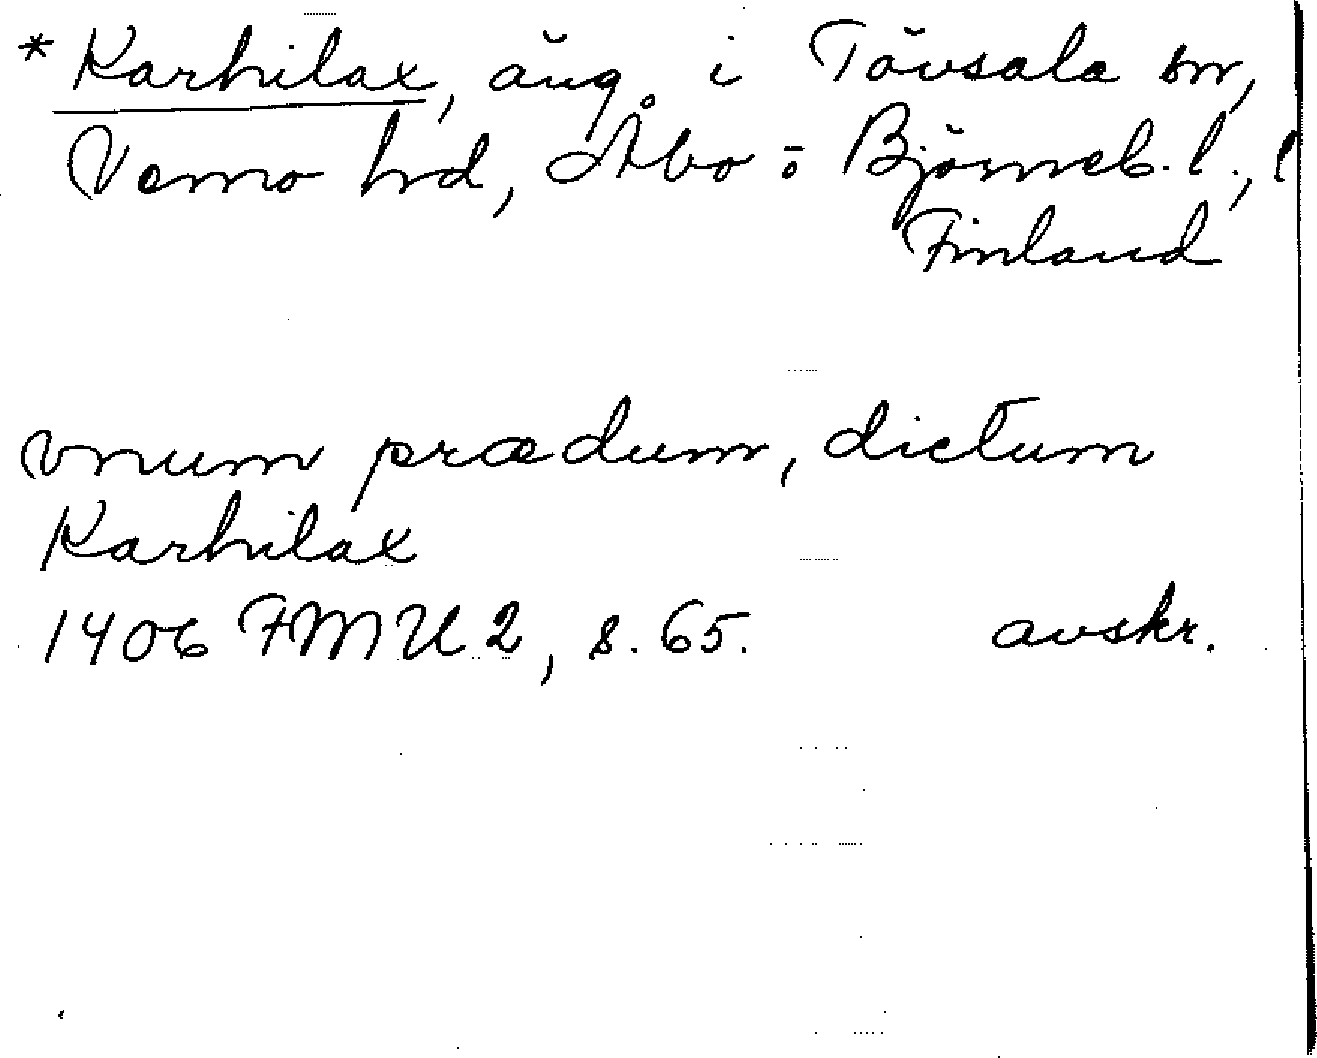 * Karhilax, äng. i Tövsala sn,
Vemo hrd, Åbo o Björneb. l.,
Finland
Vnum prædium, dictum
Karhilax
1406 FMU 2, s. 65. avskr.